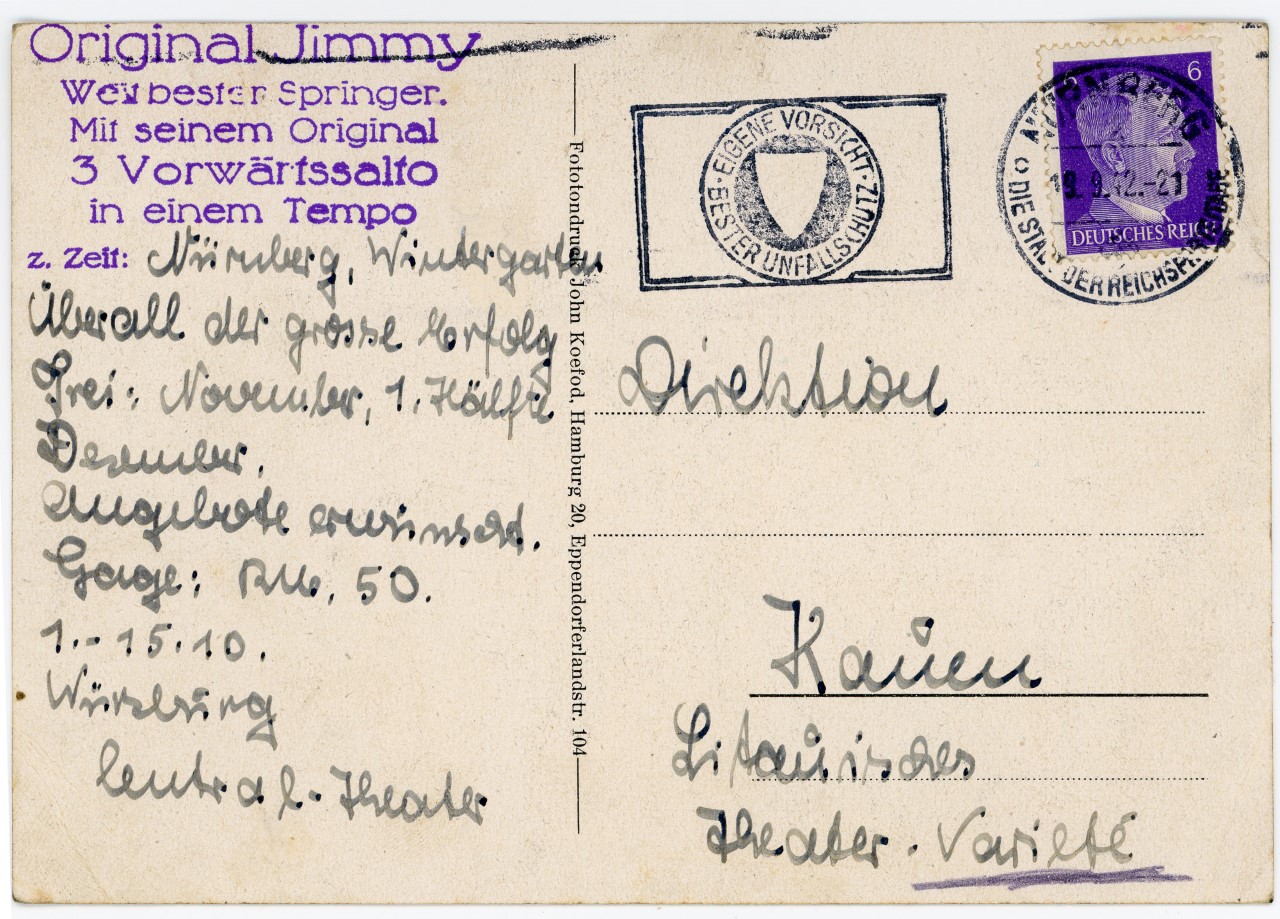 Original Jimmy
Weltbester Springer.
Mit seinem Original
3 Vorwärtssalto
in einem Tempo
z. Zeit: Nürnberg, Wintergarten
Überall der grosse Erfolg
Frei: November, 1. Hälfte
Dezember.
Angebote erwünscht.
Gage: RM. 50.
1.-15.10.
Würzburg
Central-Theater
Fototondruck John Koefod, Hamburg 20, Eppendorferlandstr. 104
EIGENE VORSICHT
BESTER UNFALLSCHUTZ
6 6
DEUTSCHES REICH
NÜRNBERG
19.9.42.-21
DIE STADT DER REICHSPARTEITAGE
Direktion
Kauen
Litauisches
Theater. Varieté